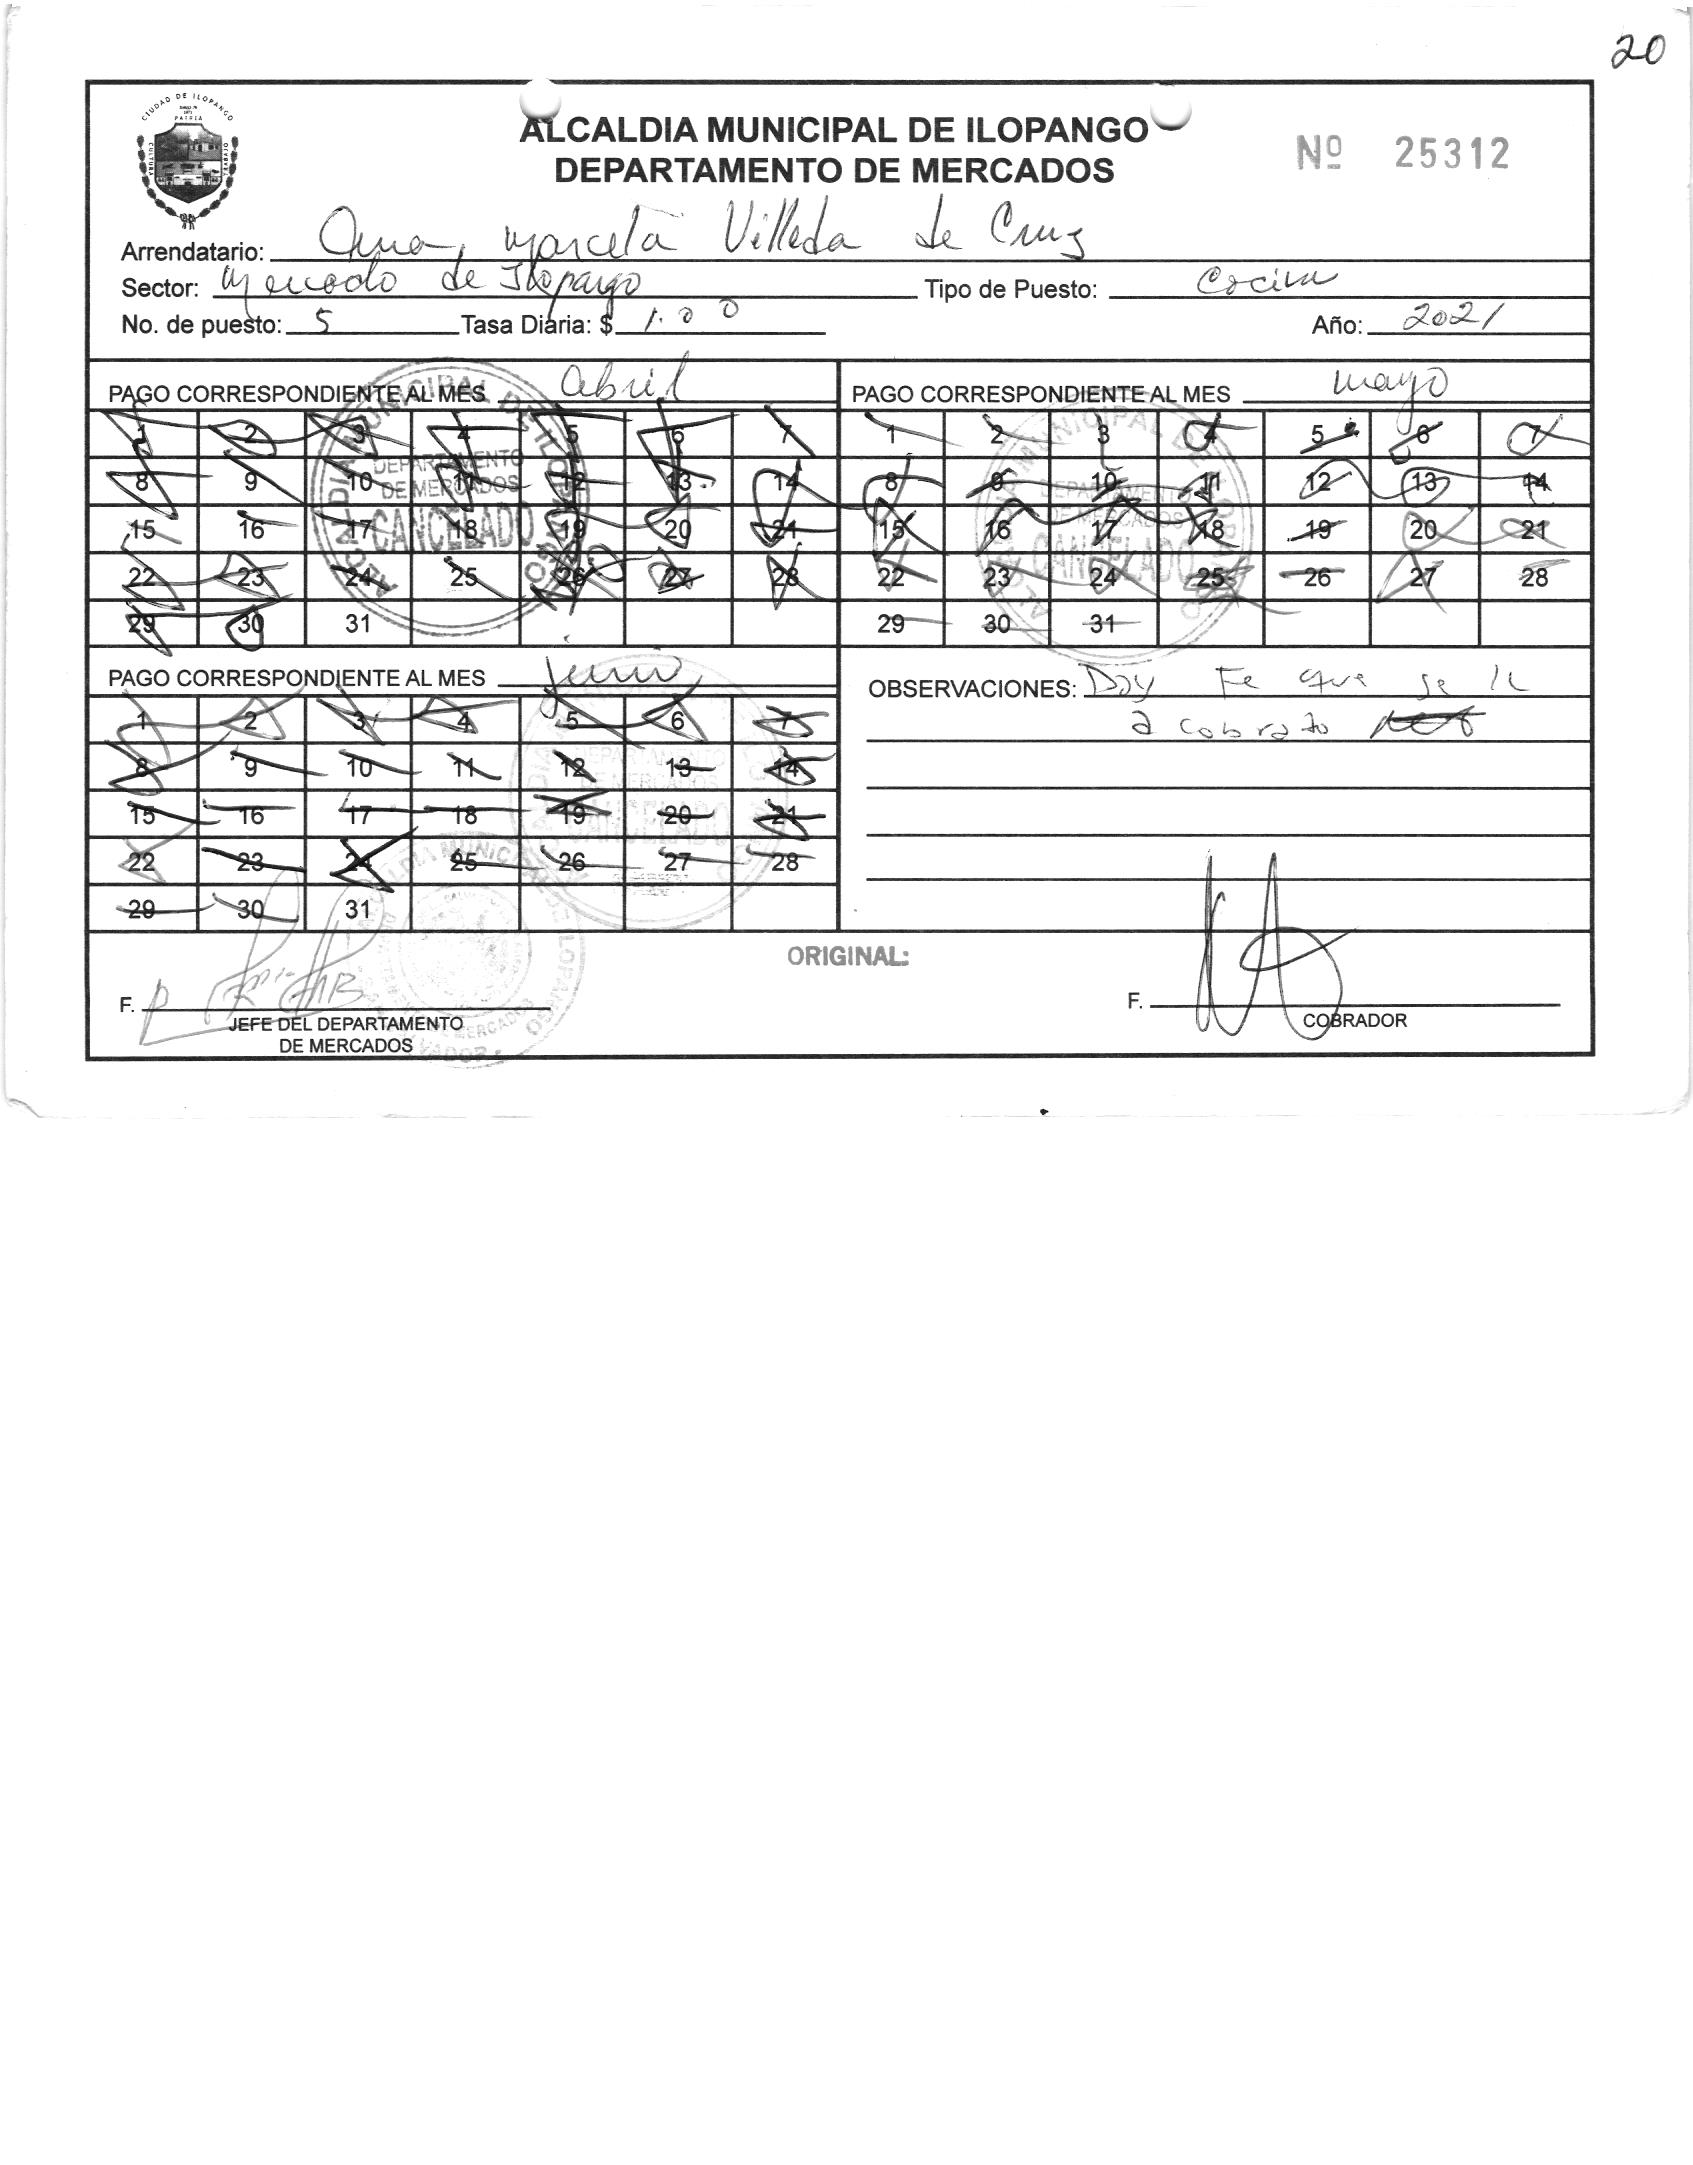 20
CIUDAD DE ILOPANGO
PATRIA
CULTURA
ALCALDIA MUNICIPAL DE ILOPANGO
DEPARTAMENTO DE MERCADOS
Nº 25312
Arrendatario: Ana Marcela Villeda de Cruz
Sector: Mercado de Ilopango Tipo de Puesto: Cocina
No. de puesto: 5 Tasa Diaria: $ 1.00 Año: 2021
PAGO CORRESPONDIENTE AL MES abril
1 2 3 4 5 6 7
8 9 10 11 12 13 14
15 16 17 18 19 20 21
22 23 24 25 26 27 28
29 30 31
ALCALDIA MUNICIPAL DE ILOPANGO
DEPARTAMENTO
DE MERCADOS
CANCELADO
PAGO CORRESPONDIENTE AL MES mayo
1 2 3 4 5 6 7
8 9 10 11 12 13 14
15 16 17 18 19 20 21
22 23 24 25 26 27 28
29 30 31
ALCALDIA MUNICIPAL DE ILOPANGO
DEPARTAMENTO
DE MERCADOS
CANCELADO
PAGO CORRESPONDIENTE AL MES junio
1 2 3 4 5 6 7
8 9 10 11 12 13 14
15 16 17 18 19 20 21
22 23 24 25 26 27 28
29 30 31
DEPARTAMENTO
DE MERCADOS
CANCELADO
OBSERVACIONES: Doy Fe que se le
a cobrado
ORIGINAL:
F.
JEFE DEL DEPARTAMENTO
DE MERCADOS
F.
COBRADOR